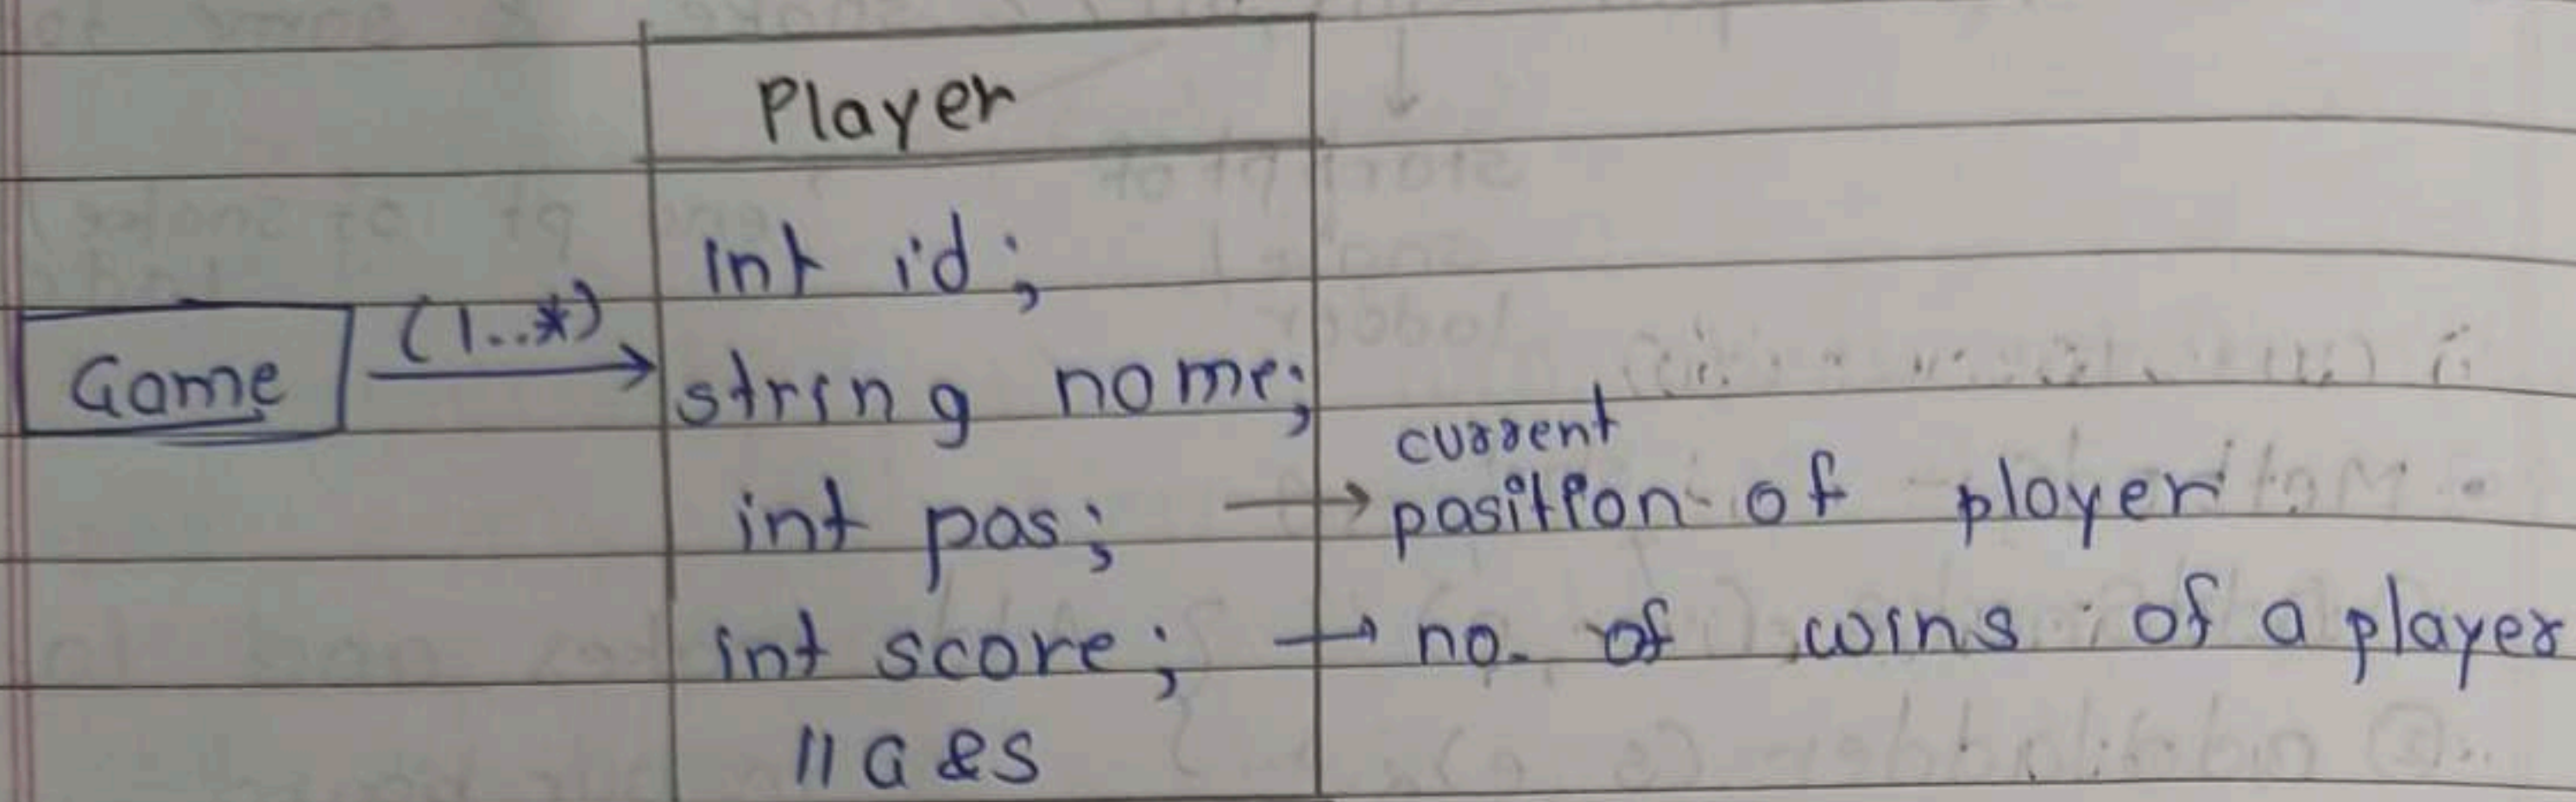 Player
int id;
(1..*)
Game
string name;
current
int pos; → position of player
int score; → no. of wins of a player
// G & S